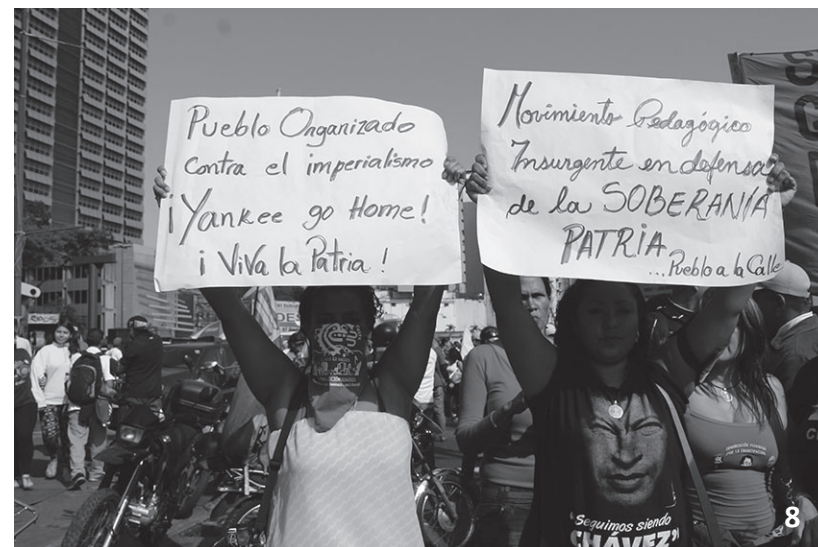 Pueblo Organizado
contra el imperialismo
¡Yankee go Home!
¡Viva la Patria!
Movimiento Pedagógico
Insurgente en defensa
de la SOBERANÍA
PATRIA
...Pueblo a la Calle
"Seguimos siendo
CHÁVEZ"
8